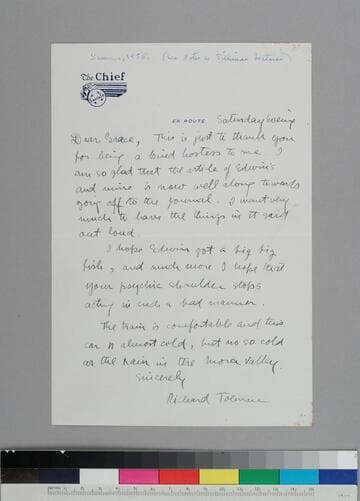 Summer, 1935. (see notes in Silliman Lectures)
The Chief
EN ROUTE Saturday Evening
Dear Grace, This is just to thank you
for being a kind hostess to me. I
am so glad that the article of Edwin's
and mine is now well along towards
going off to the journal. I want very
much to have the things in it said
out loud.
I hope Edwin got a big big
fish, and much more I hope that
your psychic shoulder stops
acting in such a bad manner.
The train is comfortable and this
car is almost cold, but no so cold
as the rain in the Mora Valley.
Sincerely
Richard Tolman